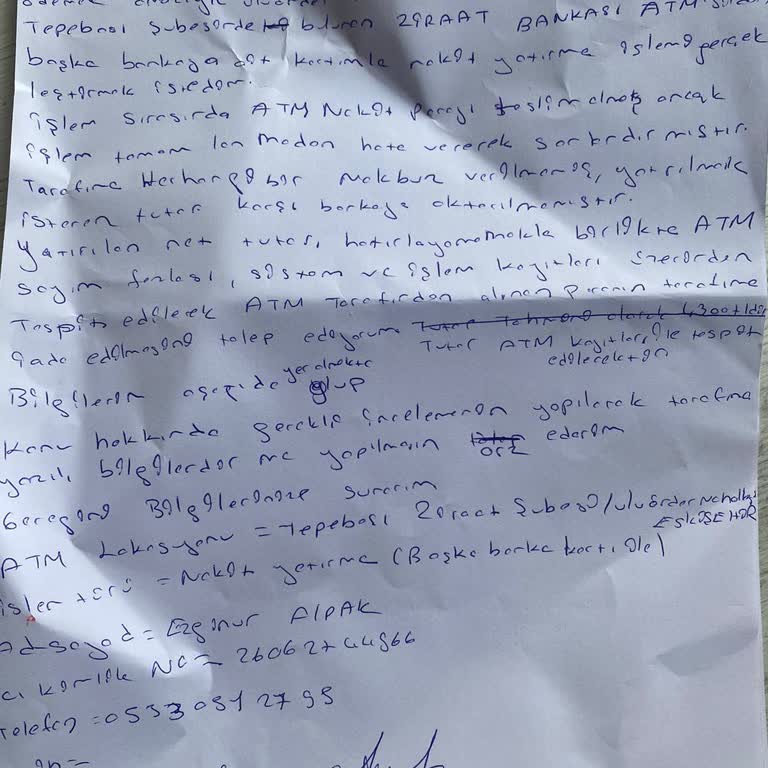 Tepebaşı Şubesinde bulunan ZİRAAT BANKASI ATM
başka bankaya ait kartımla nakit yatırma işlemi gerçek
leştirmek istedim.
işlem sırasında ATM Nakit parayı teslim almış ancak
işlem tamam lan madan hata vererek sonlandırmıştır.
Tarafıma Herhangi bir Makbuz verilmemiş, yatırılmak
istenen tutar karşı bankaya aktarılmamıştır.
Yatırılan net tutarı hatırlayamamakla birlikte ATM
sayım fazlası, sistem ve işlem kayıtları üzerinden
Tespit edilecek ATM Tarafından alınan paranın tarafıma
iade edilmesini talep ediyorum Tutar Tahmini olarak 4300 tldir
Tutar ATM kayıtları ile tespit
edilecektir
Bilgilerim aşağıda yer almakta olup
Konu hakkında gerekli incelemenin yapılarak tarafıma
yazılı bilgilendirme yapılmasını arz ederim
Gereğini Bilgilerinize sunarım
ATM Lokasyonu = Tepebaşı Ziraat Şubesi/uluönder Mahalle
ESKİŞEHİR
işlem türü = Nakit yatırma (Başka banka kartı ile)
Ad-soyad = Ezginur AlPAK
kimlik No =
Telefon = 0533 051 27 95